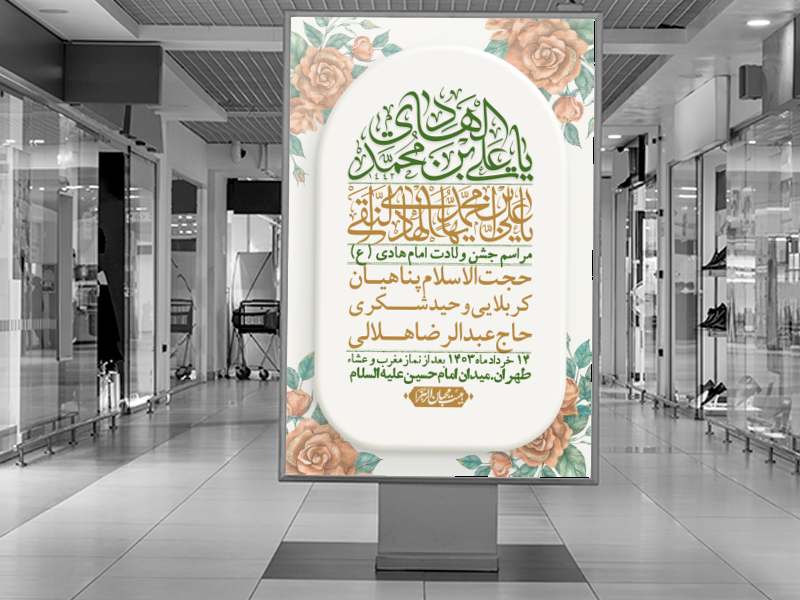 یا علی بن محمد الهادی
۱۴۴۳
یا علی بن محمد ایها الهادی النقی
مراسم جشن ولادت امام هادی (ع)
حجت الاسلام پناهیان
کربلایی وحید شکری
حاج عبدالرضا هلالی
۱۴ خرداد ماه ۱۴۰۳ بعد از نماز مغرب و عشاء
طهران.میدان امام حسین علیه السلام